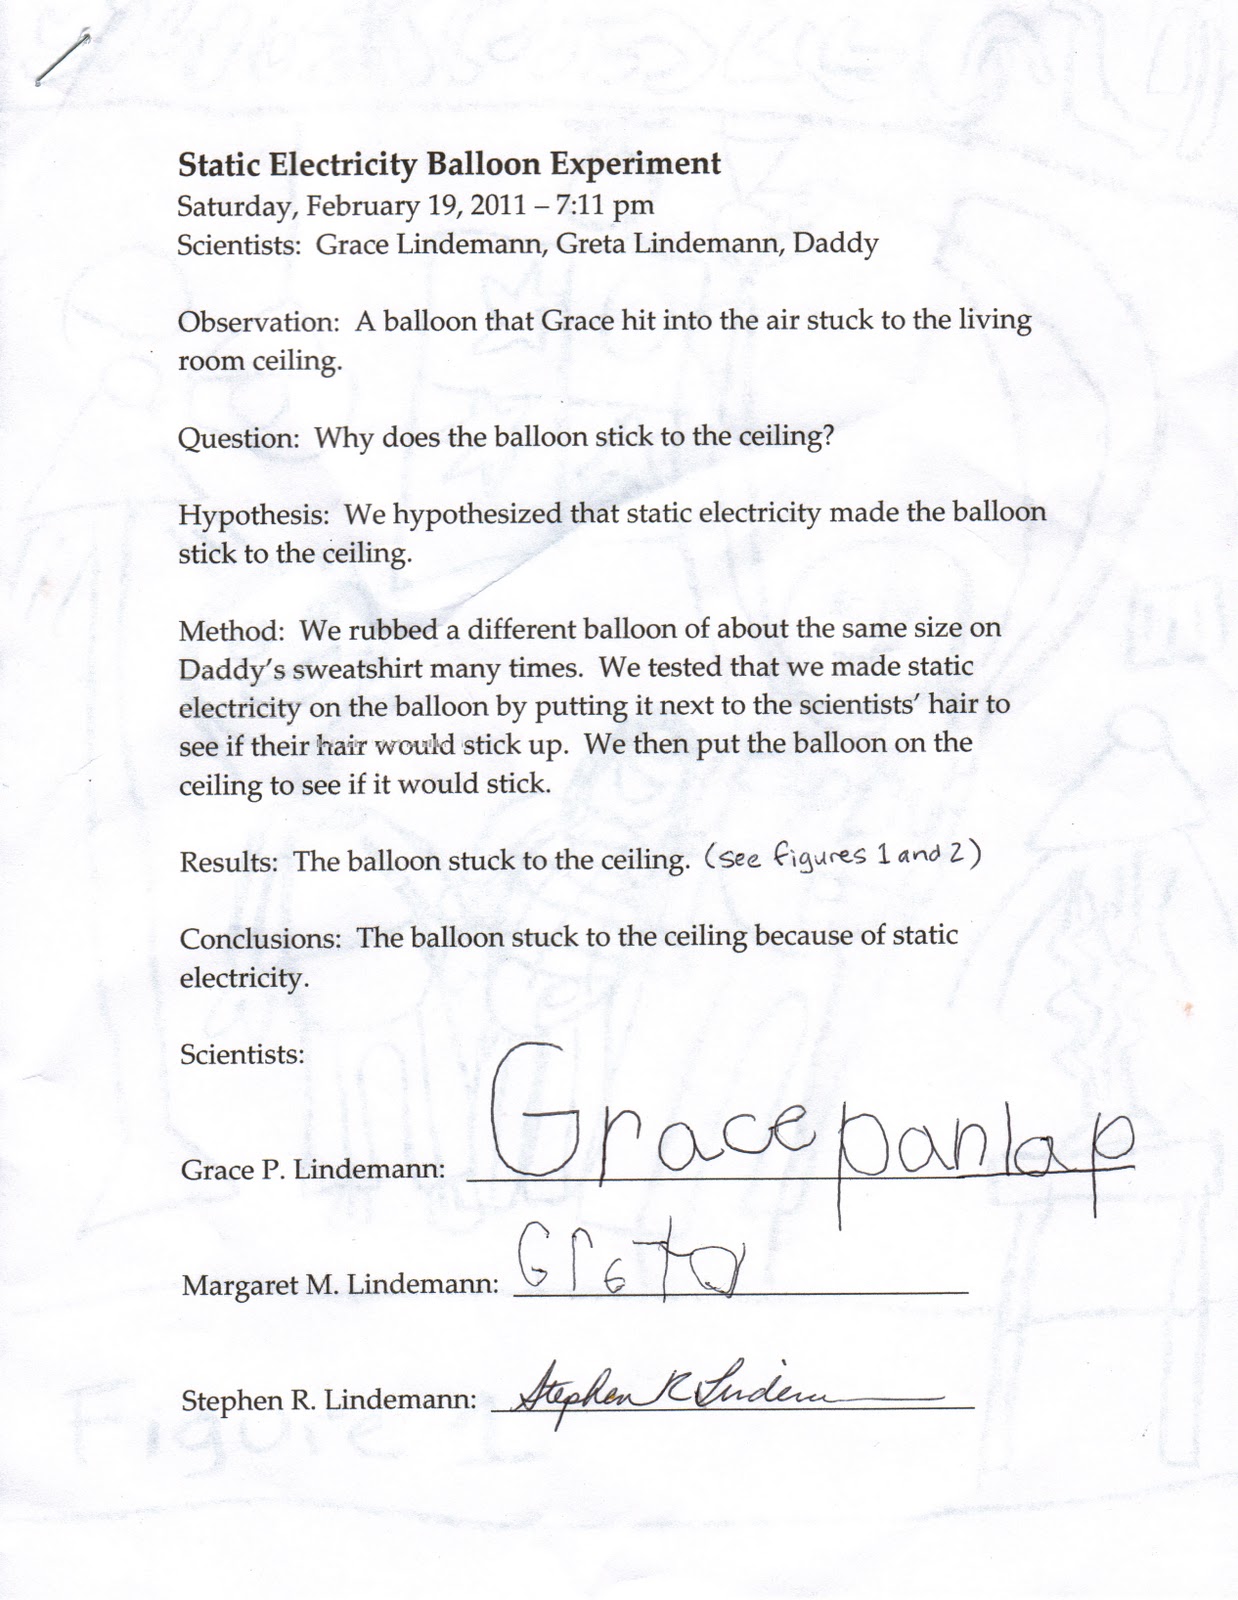 Static Electricity Balloon Experiment
Saturday, February 19, 2011 – 7:11 pm
Scientists:  Grace Lindemann, Greta Lindemann, Daddy
Observation:  A balloon that Grace hit into the air stuck to the living
room ceiling.
Question:  Why does the balloon stick to the ceiling?
Hypothesis:  We hypothesized that static electricity made the balloon
stick to the ceiling.
Method:  We rubbed a different balloon of about the same size on
Daddy's sweatshirt many times.  We tested that we made static
electricity on the balloon by putting it next to the scientists' hair to
see if their hair would stick up.  We then put the balloon on the
ceiling to see if it would stick.
Results:  The balloon stuck to the ceiling. (see figures 1 and 2)
Conclusions:  The balloon stuck to the ceiling because of static
electricity.
Scientists:
Grace P. Lindemann: Grace panlap
Margaret M. Lindemann: Greta
Stephen R. Lindemann: Stephen R Lindem
Figure